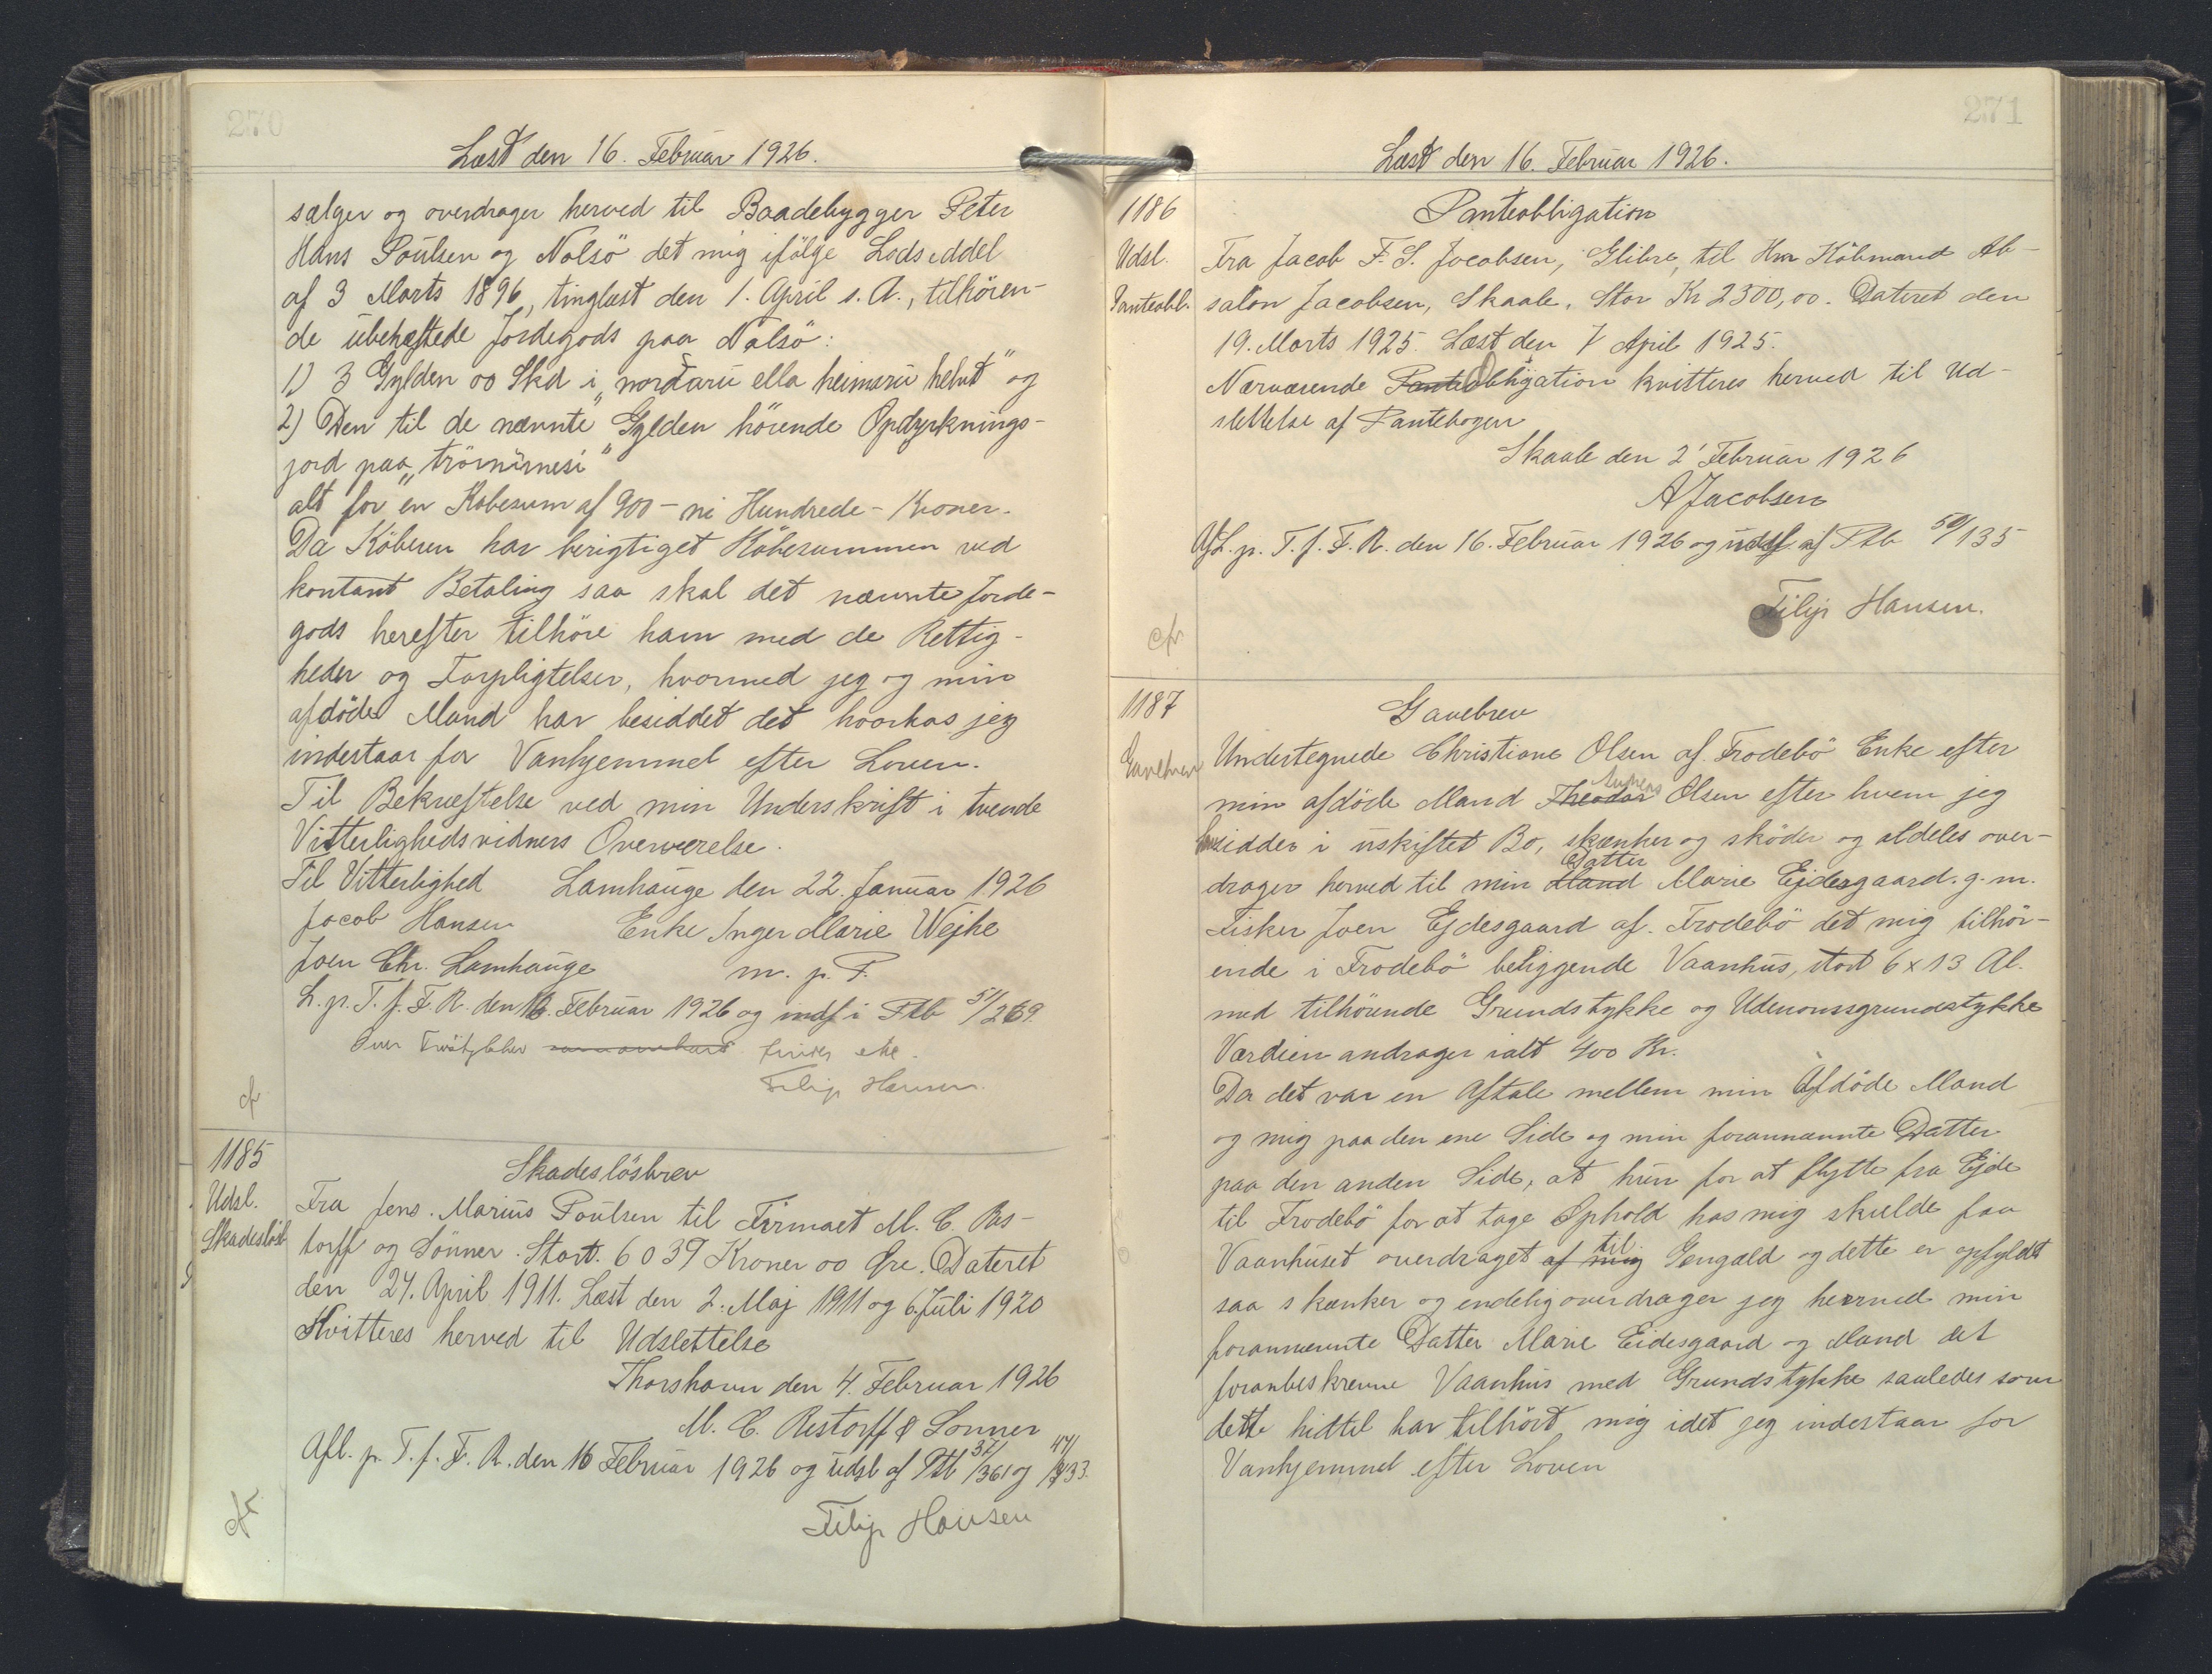 270
Læst den 16. Februar 1926.
sælger og overdrager herved til Baadebygger Peter
Hans Poulsen og Nolsö det mig ifölge Lodseddel
af 3 Marts 1896, tinglæst den 1. April s. A., tilhören-
de übehæftede Jordegods paa Nolsö:
1) 3 Gylden 00 Skd i „nordaru ella heimaru helvt" og
2) Den til de nævnte Gylden hörende Opdyrknings-
jord paa „
alt for en Købesum af 900 - ni Hundrede - Kroner.
Da Köberen har berigtiget Købesummen ved
kontant Betaling saa skal det nævnte Jorde-
gods herefter tilhöre ham med de Rettig-
heder og Forpligtelser, hvormed jeg og min
afdöde Mand har besiddet det hvorhos jeg
indestaar for Vanhjemmel efter Loven.
Til Bekræftelse ved min Underskrift i tvende
Vitterlighedsvidners Overværelse.
Til Vitterlighed Lamhauge den 22. Januar 1926
Jacob Hansen Enke Inger Marie Wejhe
Joen Chr. Lamhauge m. p. P.
L. p. T. f. F. R. den 16. Februar 1926 og indf i Ptb 51/269.
Filip Hansen.
cfr
1185
Skadeslösbrev
Udsl.
Skadeslösb
Fra Jens Marius Poulsen til Firmaet M. C. Res-
torff og Sönner. Stort. 6039 Kroner 00 Øre. Dateret
den 24. April 1911. Læst den 2. Maj 1911 og 6. Juli 1920
Kvitteres herved til Udslettelse
Thorshavn den 4. Februar 1926
M. C. Restorff & Sønner
Afl. p. T. f. F. R. den 16 Februar 1926 og udsl af Ptb 37/361 og 47/433.
Filip Hansen
cfr
271
Læst den 16. Februar 1926.
1186
Panteobligation
Udsl.
Panteobl.
Fra Jacob F. S. Jacobsen, Glibre, til Hrr Köbmand Ab-
salon Jacobsen, Skaale. Stor Kr 2300,00. Dateret den
19. Marts 1925. Læst den 7 April 1925.
Nærværende Panteobligation kvitteres herved til Ud-
slettelse af Pantebogen
Skaale den 2' Februar 1926
A Jacobsen
Afl. p. T. f. F. R. den 16. Februar 1926 og udsl af Ptb 50/135
Filip Hansen.
cfr
1187
Gavebrev
Gavebrev
Undertegnede Christiane Olsen af Frodebö Enke efter
min afdöde Mand Theodor Olsen efter hvem jeg
hensidder i uskiftet Bo, skænker og sköder og aldeles over-
drager herved til min Mand Datter Marie Ejdesgaard. g. m.
Fisker Joen Ejdesgaard af Frodebö det mig tilhör-
ende i Frodebö beliggende Vaanhus, stort 6 x 13 Al.
med tilhörende Grundstykke og Udenomsgrundstykke
Værdien andrager ialt 400 Kr.
Da det var en Aftale mellem min Afdöde Mand
og mig paa den ene Side og min forannævnte Datter
paa den anden Side, at hun for at flytte fra Ejde
til Frodebö for at tage Ophold hos mig skulde faa
Vaanhuset overdraget af mig til Gengæld og dette er opfyldt
saa skænker og endelig overdrager jeg herved min
forannævnte Datter Marie Eidesgaard og Mand det
foranbeskrevne Vaanhus med Grundstykke saaledes som
dette hidtil har tilhört mig idet jeg indestaar for
Vanhjemmel efter Loven